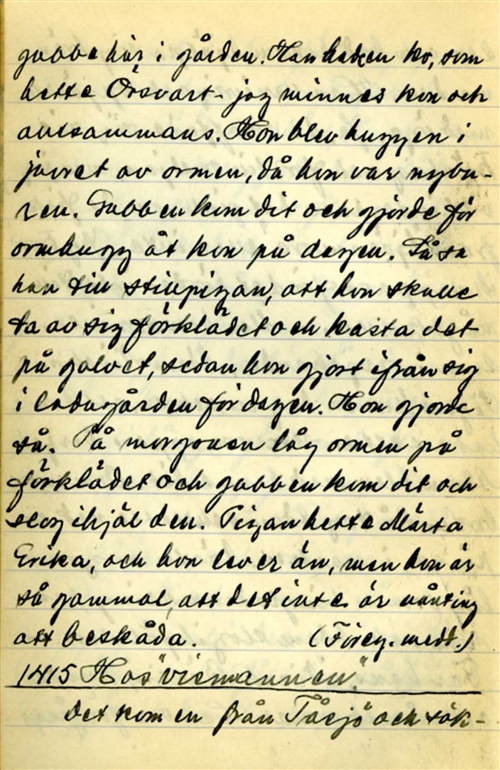 gubbe här i gården. Han hade en ko, som
hette Örsvart - jag minnes kon och
alltsammans. Hon blev huggen i
juvret av ormen, då hon var nybu-
ren. Gubben kom dit och gjorde för
ormhugg åt kon på dagen. Så sa
han till stintpigan, att hon skulle
ta av sig förklädet och kasta det
på golvet, sedan hon gjort ifrån sig
i ladugården för dagen. Hon gjorde
så. På morgonen låg ormen på
förklädet och gubben kom dit och
slog ihjäl den. Pigan hette Märta
Erika, och hon lever än, men hon är
så gammal, att det inte är nånting
att beskåda. (Föreg. medd.)
1415 Hos "viemannen"
Det kom en från Tåsjö och sök-